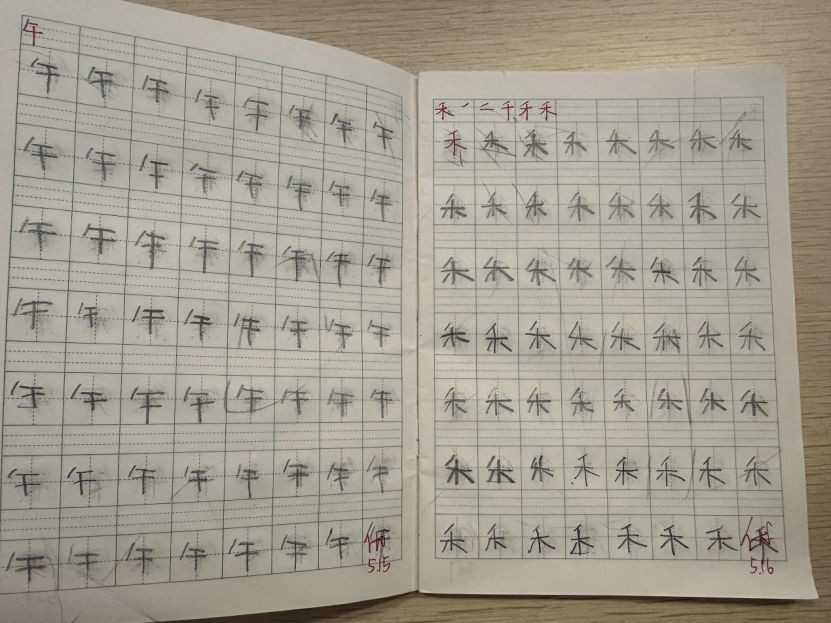 午
午 午 午 午 午 午 午 午
午 午 午 午 午 午 午 午
午 午 午 午 午 午 午 午
午 午 午 午 午 午 午 午
午 午 午 午 午 午 午 午
午 午 午 午 午 午 午 午
午 午 午 午 午 午 午 午
5.15
禾 ㇒ 二 千 禾
禾 禾 禾 禾 禾 禾 禾 禾
禾 禾 禾 禾 禾 禾 禾 禾
禾 禾 禾 禾 禾 禾 禾 禾
禾 禾 禾 禾 禾 禾 禾 禾
禾 禾 禾 禾 禾 禾 禾 禾
禾 禾 禾 禾 禾 禾 禾 禾
禾 禾 禾 禾 禾 禾 禾 禾
5.16